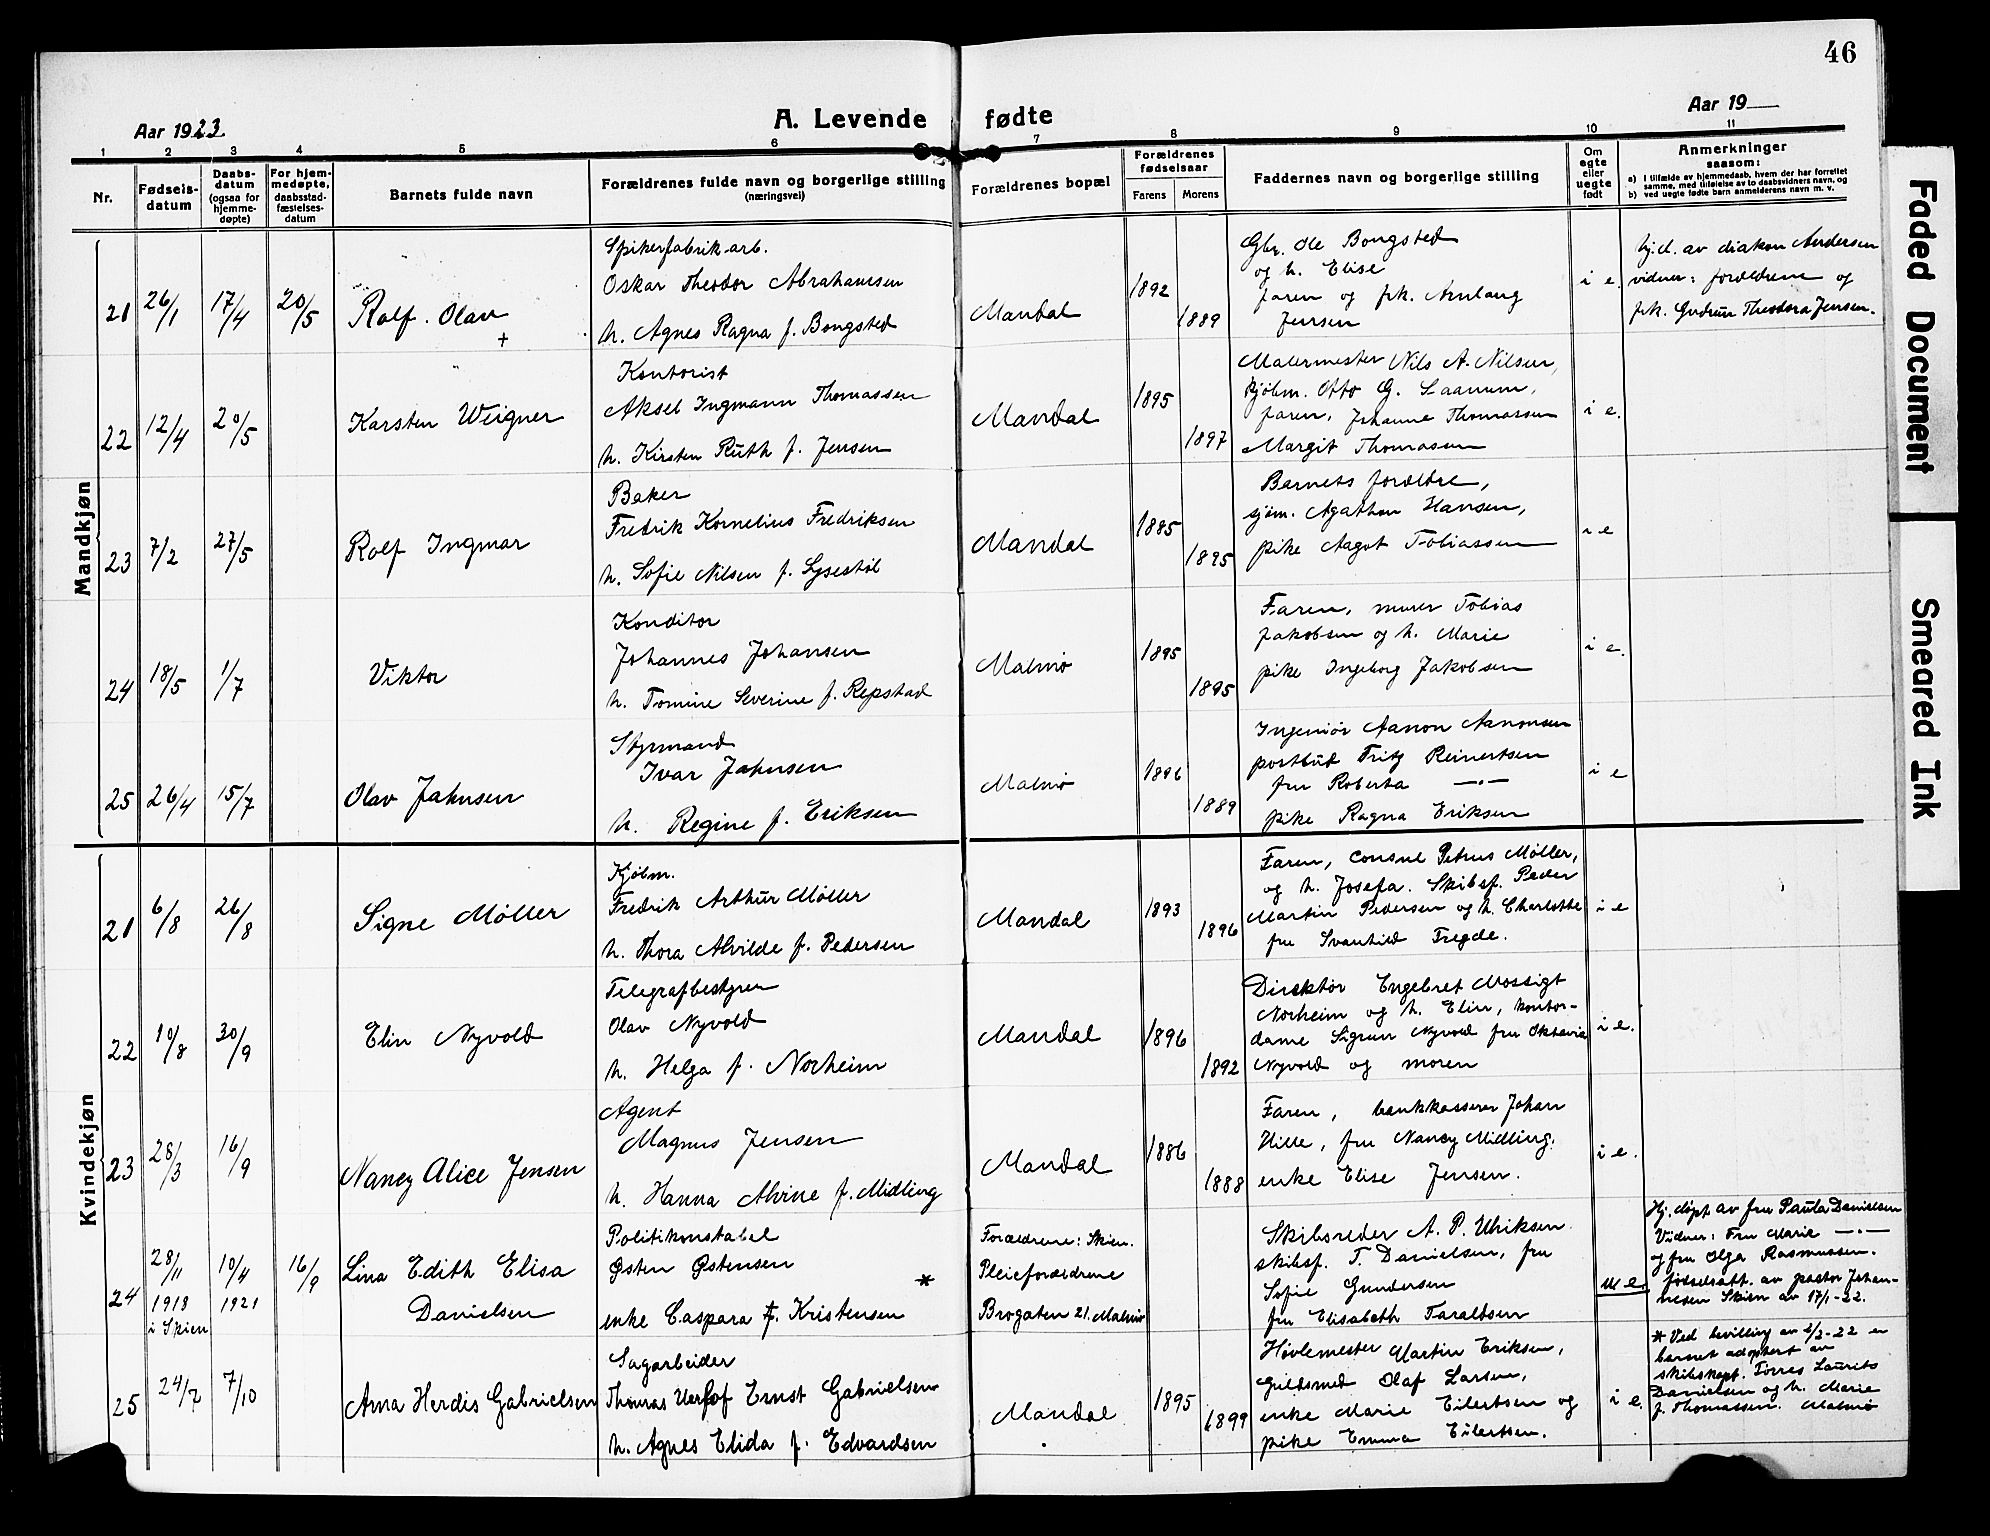 46
Aar 1923
A. Levende fødte
Aar 19
1 2 3 4 5 6 7 8 9 10 11
Nr.
Fødsels-
datum
Daabs-
datum
(ogsaa for
hjemme-
døpte)
For hjem-
medøpte,
daabsstad-
fæstelses-
datum
Barnets fulde navn
Forældrenes fulde navn og borgerlige stilling
(næringsvei)
Forældrenes bopæl
Forældrenes
fødselsaar
Farens Morens
Faddernes navn og borgerlige stilling
Om
egte
eller
uegte
født
Anmerkninger
saasom:
a) I tilfælde av hjemmedaab, hvem der har forrettet
samme, med tilføielse av to daabsvidners navn, og
b) ved uegte fødte barn anmelderens navn m. v.
Mandkjøn
21 26/1 17/4 20/5 Rolf Olav
+
Spikerfabrik arb.
Oskar Theodor Abrahamsen
h. Agnes Ragna f. Bongsted
Mandal
1892
1889
Gbr. Ole Bongsted
og h. Elise
faren og frk. Arnlaug
Jensen
i e.
hj.d. av diakon Andersen
vidner: forældrene og
frk. Gudrun Theodora Jensen.
22 12/4 20/5 Karsten Weigner
Kontorist
Aksel Ingmann Thomassen
h. Kirsten Ruth f. Jensen
Mandal
1895
1897
Malermester Nils A. Nilsen,
kjøbm. Otto G. Saanum,
faren, Johanne Thomassen
Margit Thomasen
i e.
23 7/2 27/5 Rolf Ingmar
Baker
Fredrik Kornelius Fredriksen
h. Sofie Nilsen f. Lysestøl
Mandal
1885
1895
Barnets forældre,
sjøm. Agathon Hansen,
pike Aagot Tobiassen
i e
24 18/5 1/7 Viktor
Konditor
Johannes Johansen
h. Tomine Severine f. Repstad
Malmø
1895
1895
Faren, murer Tobias
Jakobsen og h. Marie
pike Ingeborg Jakobsen
i e.
25 26/4 15/7 Olav Jahnsen
Styrmand
Ivar Jahnsen
h. Regine f. Eriksen
Malmø
1896
1889
Ingeniør Aanon Aanonsen
postbud Fritz Reinertsen
fru Roberta —"—
pike Ragna Eriksen
i e
Kvindekjøn
21 6/8 26/8 Signe Møller
Kjøbm.
Fredrik Arthur Møller
h. Thora Alvilde f. Pedersen
Mandal
1893
1896
Faren, consul Petrus Møller,
og h. Josefa. Skibsf. Peder
Martin Pedersen og h. Charlotte
fru Svanhild Fregde.
i e
22 10/8 30/9 Elin Nyvold
Telegrafbestyrer
Olav Nyvold
h. Helga f. Norheim
Mandal
1896
1892
Direktør Engebret Mossigt
Norheim og h. Elin, kontor-
dame Sigrun Nyvold fru Oktavia
Nyvold og moren
i e.
23 28/3 16/9 Nancy Alice Jensen
Agent
Magnus Jensen
h. Hanna Alvine f. Midling
Mandal
1886
1888
Faren, bankkasserer Johan
Hille, fru Nancy Midling.
enke Elise Jensen.
i e.
24 28/11 1918 i Skien 10/4 1921 16/9 Lina Edith Elisa
Danielsen
Politikonstabel
Østen Østensen
*
enke Caspara f. Kristensen
Forældrene: Skien.
Pleieforældrene
Brogaten 21. Malmø
Skibsreder A. P. Ulriksen.
skibsf. T. Danielsen, fru
Sofie Gundersen
fru Elisabeth Taraldsen
u e.
Hj. døpt av fru Paula Danielsen
Vidner: Fru Marie —"—
og fru Olga Rasmussen.
fødselsatt. av pastor Johan-
nesen Skien av 17/1-22.
25 24/7 7/10 Arna Herdis Gabrielsen
Sagarbeider
Thomas Ernst Gabrielsen
h. Agnes Elida f. Edvardsen
Mandal
1895
1899
Høvlemester Martin Eriksen,
Guldsmed Olaf Larsen,
enke Marie Eilertsen og
pike Emma Eilertsen.
i e.
* Ved bevilling av 2/2-22 er
barnet adoptert av
skibskapt. Torres Laurits
Danielsen og h. Marie
f. Thomassen. Malmø
Faded Document
Smeared Ink